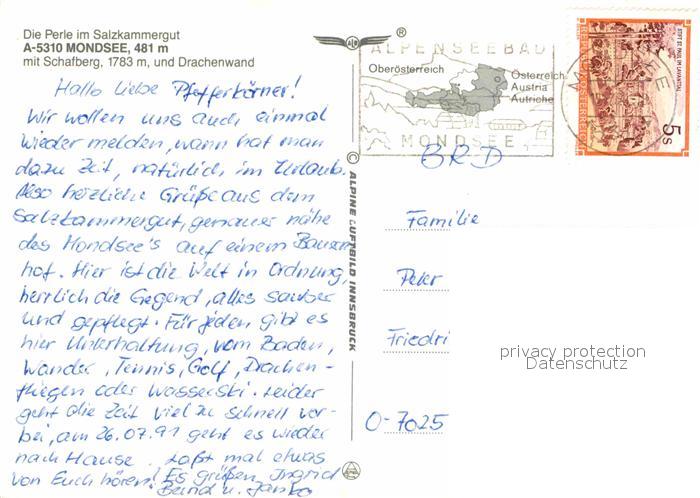 Die Perle im Salzkammergut
A-5310 MONDSEE, 481 m
mit Schafberg, 1783 m, und Drachenwand
Hallo liebe Pfefferkörner!
Wir wollen uns auch einmal
wieder melden, wann hat man
dazu Zeit, natürlich im Urlaub.
Also herzliche Grüße aus dem
Salzkammergut, genauer nähe
des Mondsee's auf einem Bauern
hof. Hier ist die Welt in Ordnung,
herrlich die Gegend, alles sauber
und gepflegt. Für jeden gibt es
hier Unterhaltung, vom Baden,
Wander, Tennis, Golf, Drachen-
fliegen oder Wasserski. Leider
geht die Zeit viel zu schnell vor-
bei, am 26.07.91 geht es wieder
nach Hause. Laßt mal etwas
von Euch hören! Es grüßen Ingrid
Bernd u. Janko
© ALPINE LUFTBILD INNSBRUCK
®
ALPENSEEBAD
Oberösterreich
Österreich
Austria
Autriche
MONDSEE
STIFT ST. PAUL IM LAVANTTAL
REPUBLIK ÖSTERREICH
5s
BRD
Familie
Peter
Friedri
O-7025
privacy protection
Datenschutz